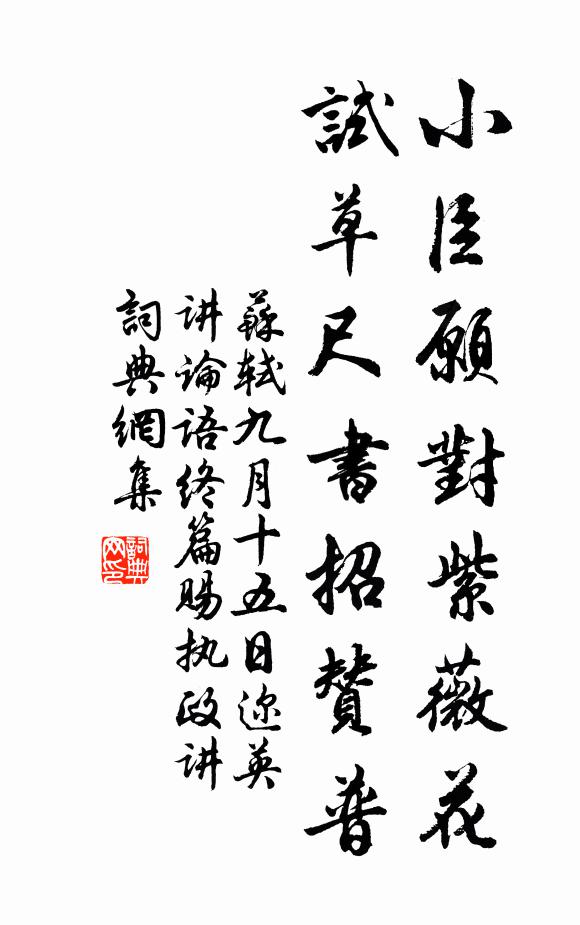 小臣願對紫薇花
試草尺書招贊普
蘇軾九月十五日迩英
讲論語终篇賜执政讲
詞典網集
詞典網印